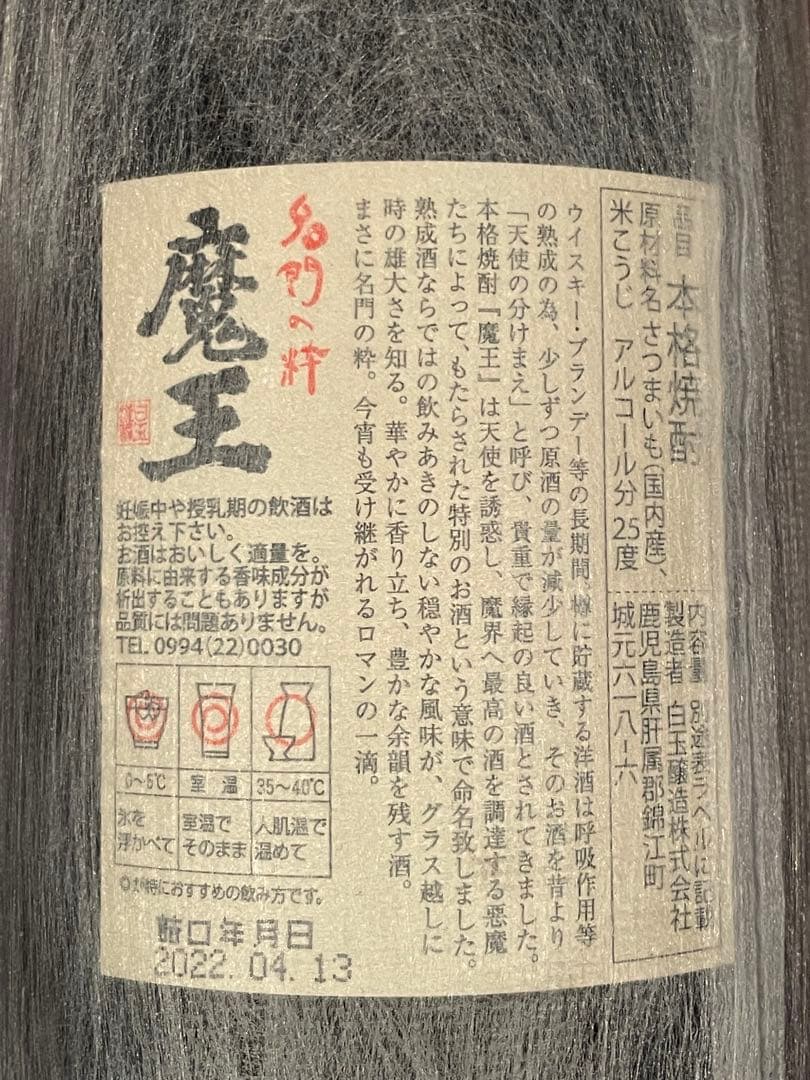 品目 本格焼酎
原材料名 さつまいも(国内産)、
米こうじ アルコール分 25度
内容量 別途表ラベルに記載
製造者 白玉醸造株式会社
鹿児島県肝属郡錦江町
城元六一八-六
ウイスキー・ブランデー等の長期間、樽に貯蔵する洋酒は呼吸作用等
の熟成の為、少しずつ原酒の量が減少していき、そのお酒を昔より
「天使の分けまえ」と呼び、貴重で縁起の良い酒とされてきました。
本格焼酎『魔王』は天使を誘惑し、魔界へ最高の酒を調達する悪魔
たちによって、もたらされた特別のお酒という意味で命名致しました。
熟成酒ならではの飲みあきのしない穏やかな風味が、グラス越しに
時の雄大さを知る。華やかに香り立ち、豊かな余韻を残す酒。
まさに名門の粋。今宵も受け継がれるロマンの一滴。
名門の粋
魔王
妊娠中や授乳期の飲酒は
お控え下さい。
お酒はおいしく適量を。
原料に由来する香味成分が
析出することもありますが
品質には問題ありません。
TEL.0994(22)0030
0〜5℃ 室温 35〜40℃
氷を
浮かべて
室温で
そのまま
人肌温で
温めて
◎が特におすすめの飲み方です。
詰口年月日
2022.04.13